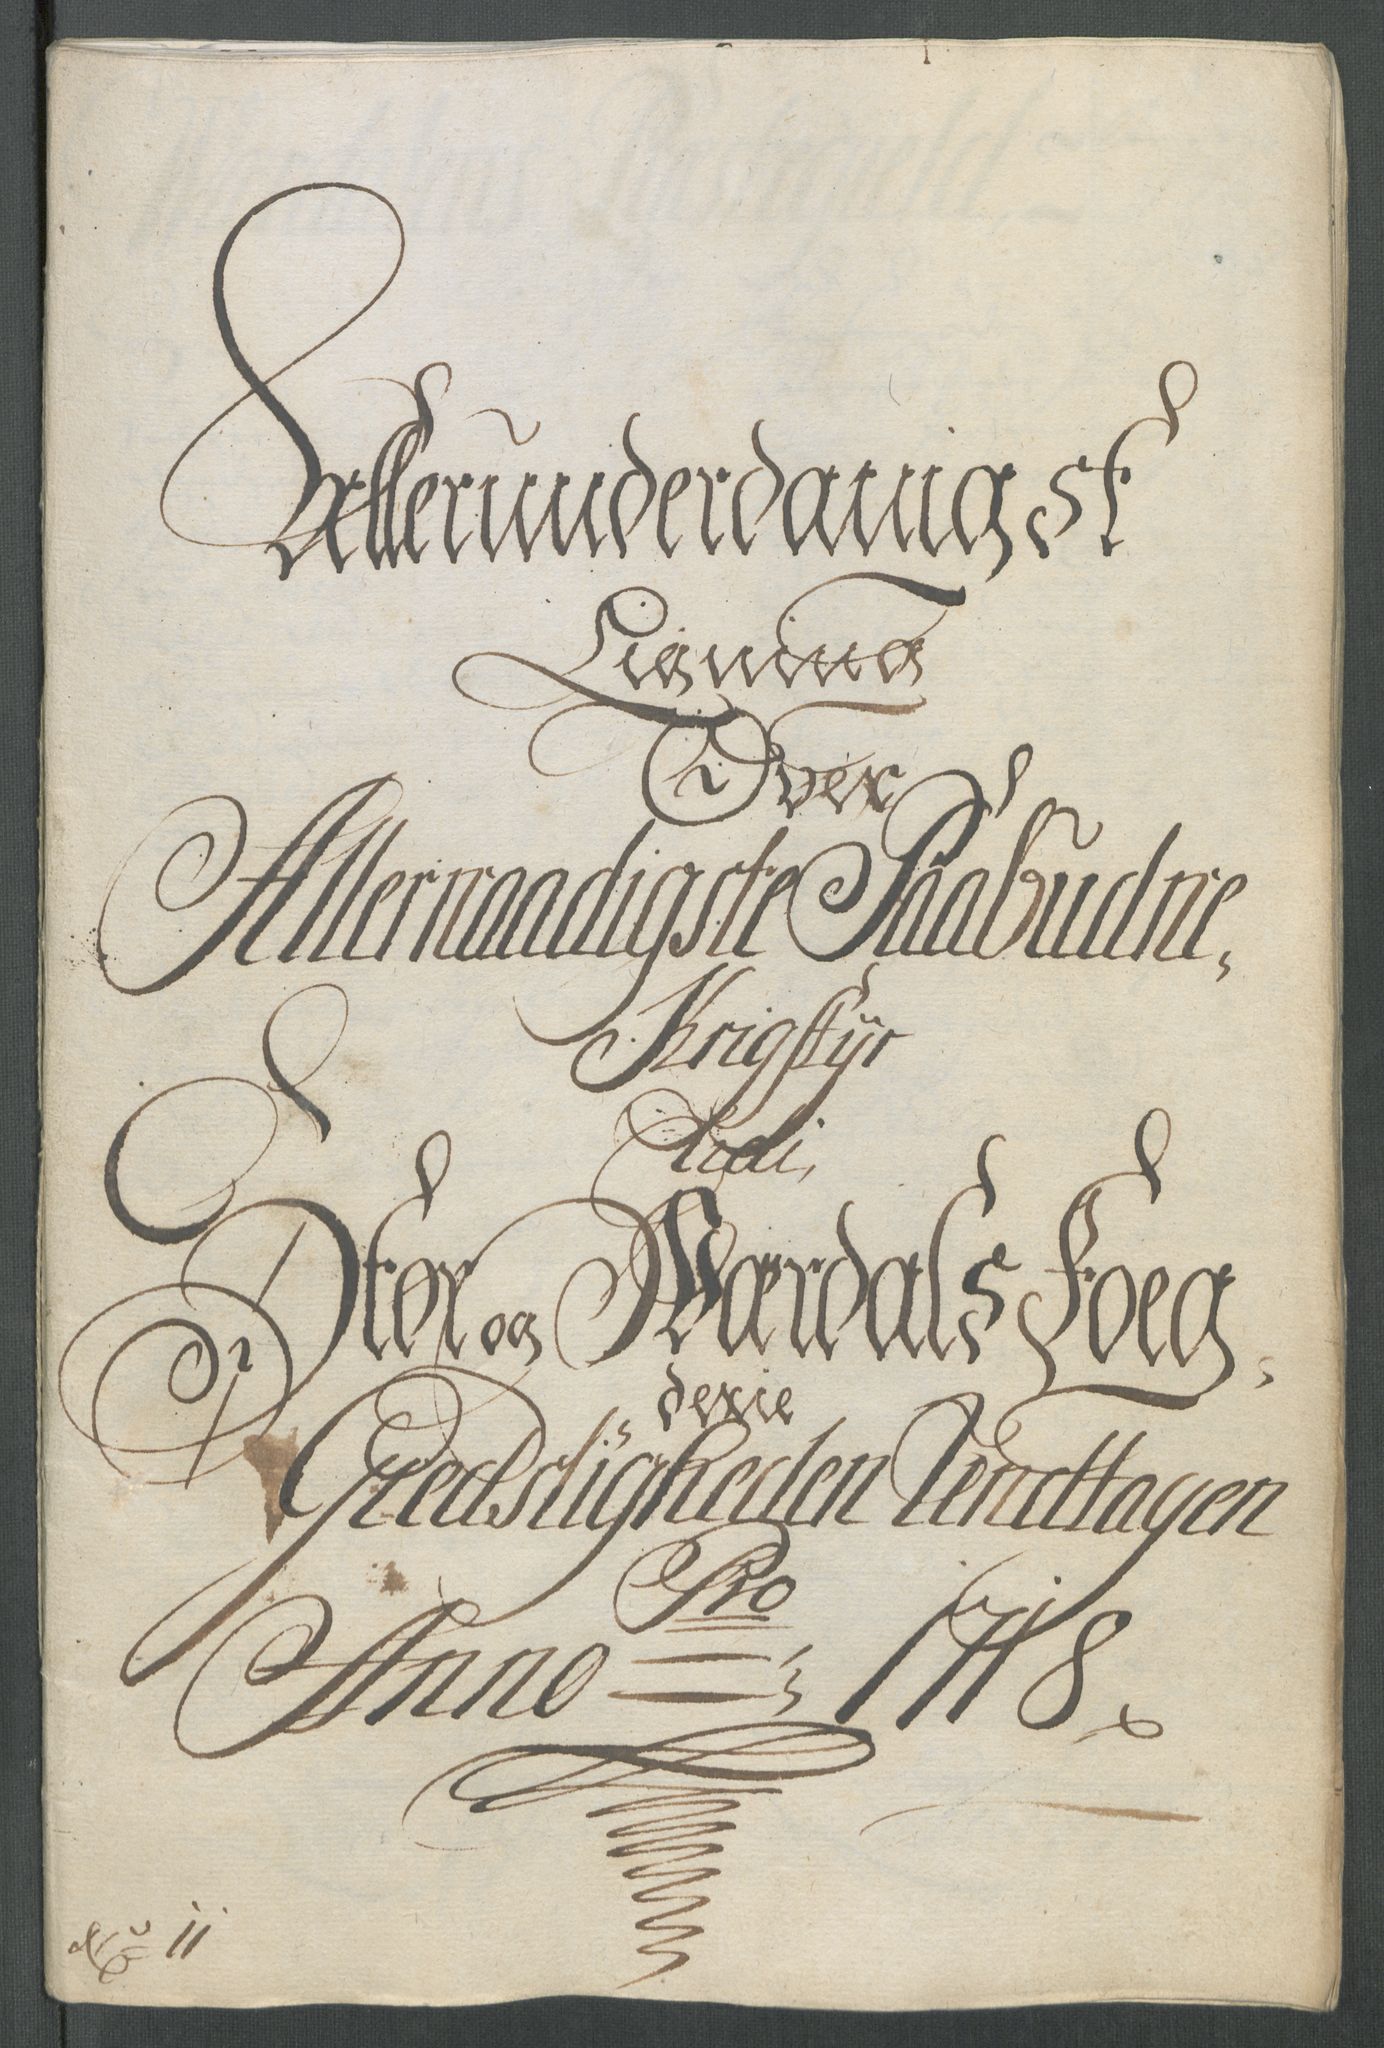 Allerunderdanigst
Ligning
Over
Allernaadigste Paabudne
Krigstÿr
Udi,
Stør og Wærdals Foeg,
derie
Giedstligheden Undttagen
Pro
Anno 1718.
No 11